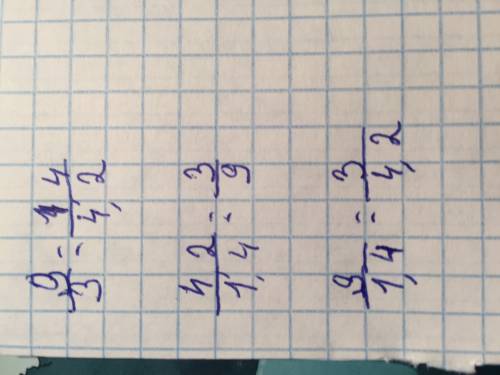 9/3 = 1,4/4,2
4,2/1,4 = 3/9
9/1,4 = 3/4,2